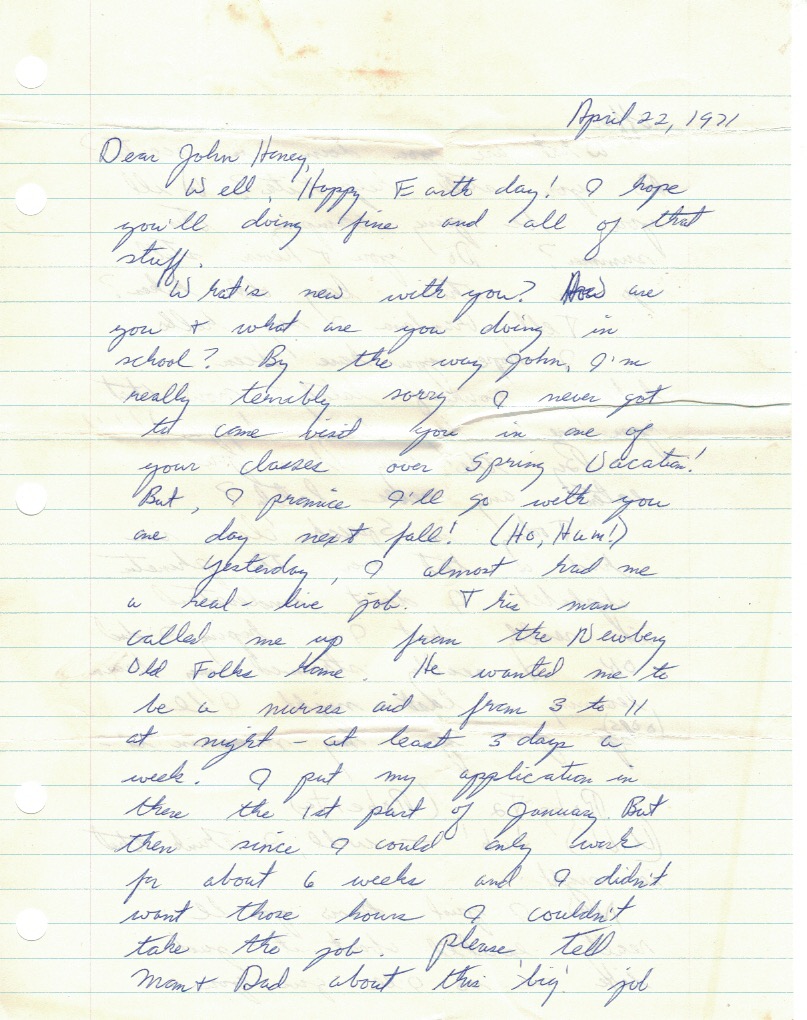 April 22, 1971
Dear John Honey,
Well, Happy Earth day! I hope
you'll doing fine and all of that
stuff.
What's new with you? How are
you + what are you doing in
school? By the way John, I'm
really terribly sorry I never got
to come visit you in one of
your classes over Spring Vacation!
But, I promice I'll go with you
one day next fall! (Ho, Hum!)
Yesterday, I almost had me
a real-live job. This man
called me up from the Newberg
Old Folks home. He wanted me to
be a nurses aid from 3 to 11
at night - at least 3 days a
week. I put my application in
there the 1st part of January. But
then since I could only work
for about 6 weeks and I didn't
want those hours I couldn't
take the job. please tell
Mom + Dad about this 'big' job